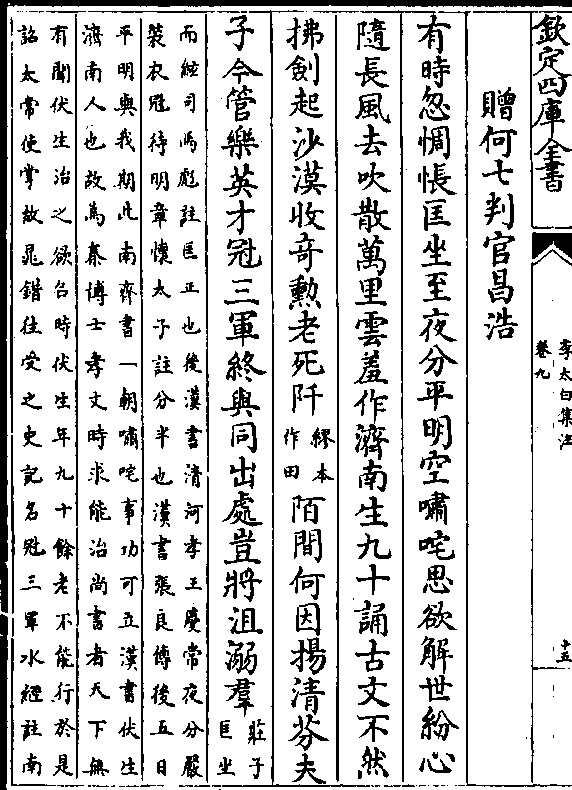 欽定四庫全書
李太白集注
卷九
十五
贈何七判官昌浩
有時忽惆悵匡坐至夜分平明空嘯咤思欲解世紛心
隨長風去吹散萬里雲羞作濟南生九十誦古文不然
拂劍起沙漠收竒勲老死阡繆本作田陌間何因揚清芬夫
子今管樂英才冠三軍終與同出處豈將沮溺羣莊子匡坐
而絃司馬彪註匡正也後漢書清河孝王慶常夜分嚴
裝衣冠待明章懷太子註分半也漢書張良傳後五日
平明與我期此南齊書一朝嘯咤事功可立漢書伏生
濟南人也故為秦博士孝文時求能治尚書者天下無
有聞伏生治之欲召時伏生年九十餘老不能行於是
詔太常使掌故晁錯往受之史記名冠三軍水經註南